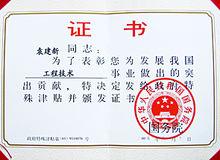 证书
袁建新 同志：
为了表彰您为发展我国
工程技术 事业做出的突
出贡献，特决定发给政府特
殊津贴并颁发证书。
中华人民共和国国务院
国务院
政府特殊津贴第